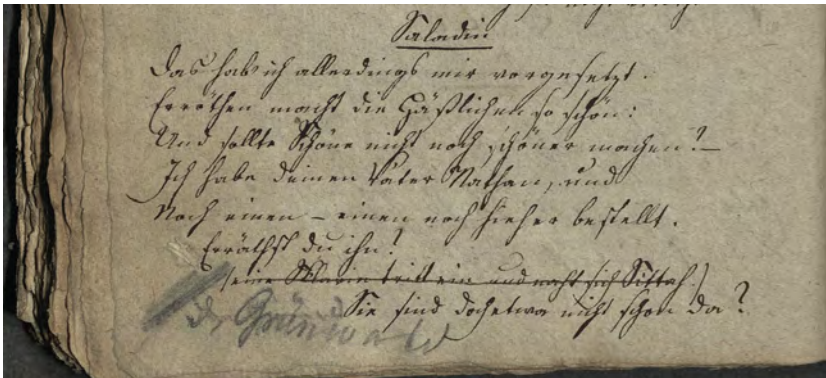 Saladin
Das hab' ich allerdings mir vorgesetzt.
Erröthen macht die Häßlichen so schön:
Und sollte Schöne nicht noch schöner machen? –
Ich habe deinen Vater Nathan, und
Noch einen – einen noch hieher bestellt.
Erräthst du ihn?
(eine Sklavin tritt ein und naht sich Sittah.)
Sie sind doch etwa nicht schon da?